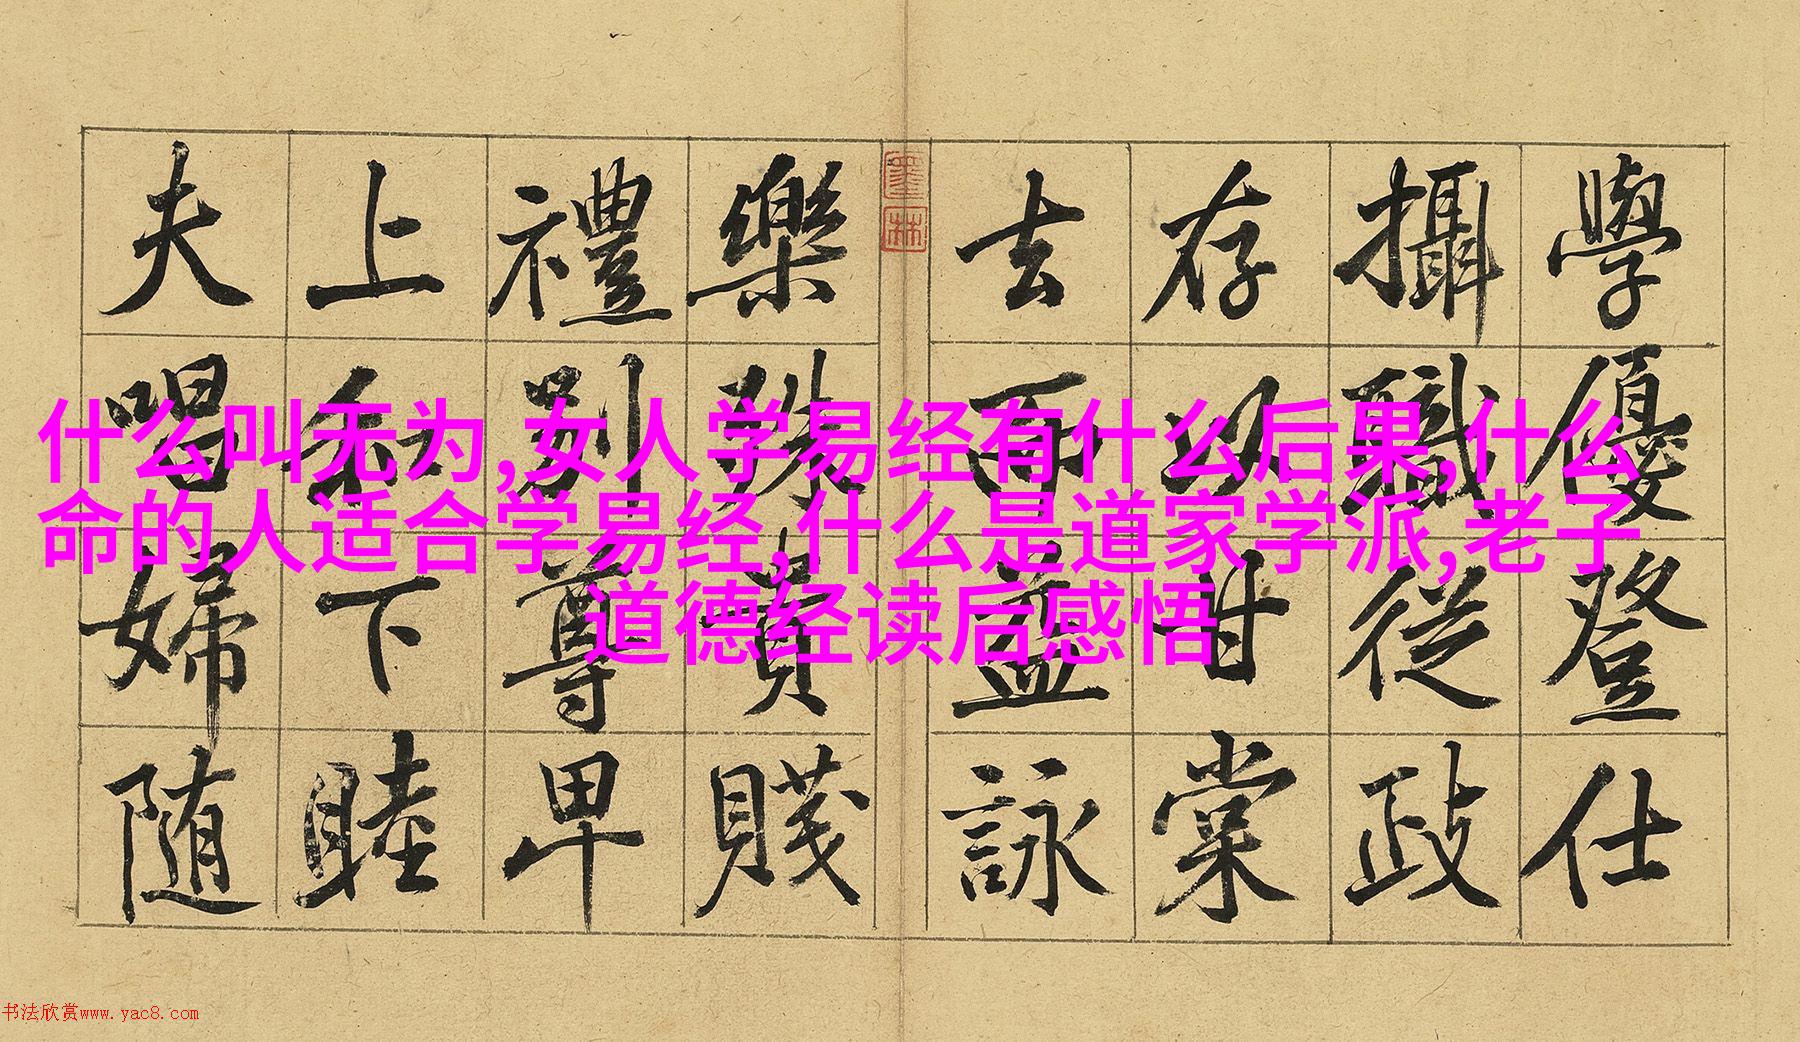 學優登仕
攝職從政
存以甘棠
去而益詠
墨林
樂殊貴賤
禮別尊卑
上和下睦
夫唱婦随
什么叫无为,女人学易经有什么后果,什么
命的人适合学易经,什么是道家学派,老子
道德经读后感悟
书法欣赏www.yac8.com